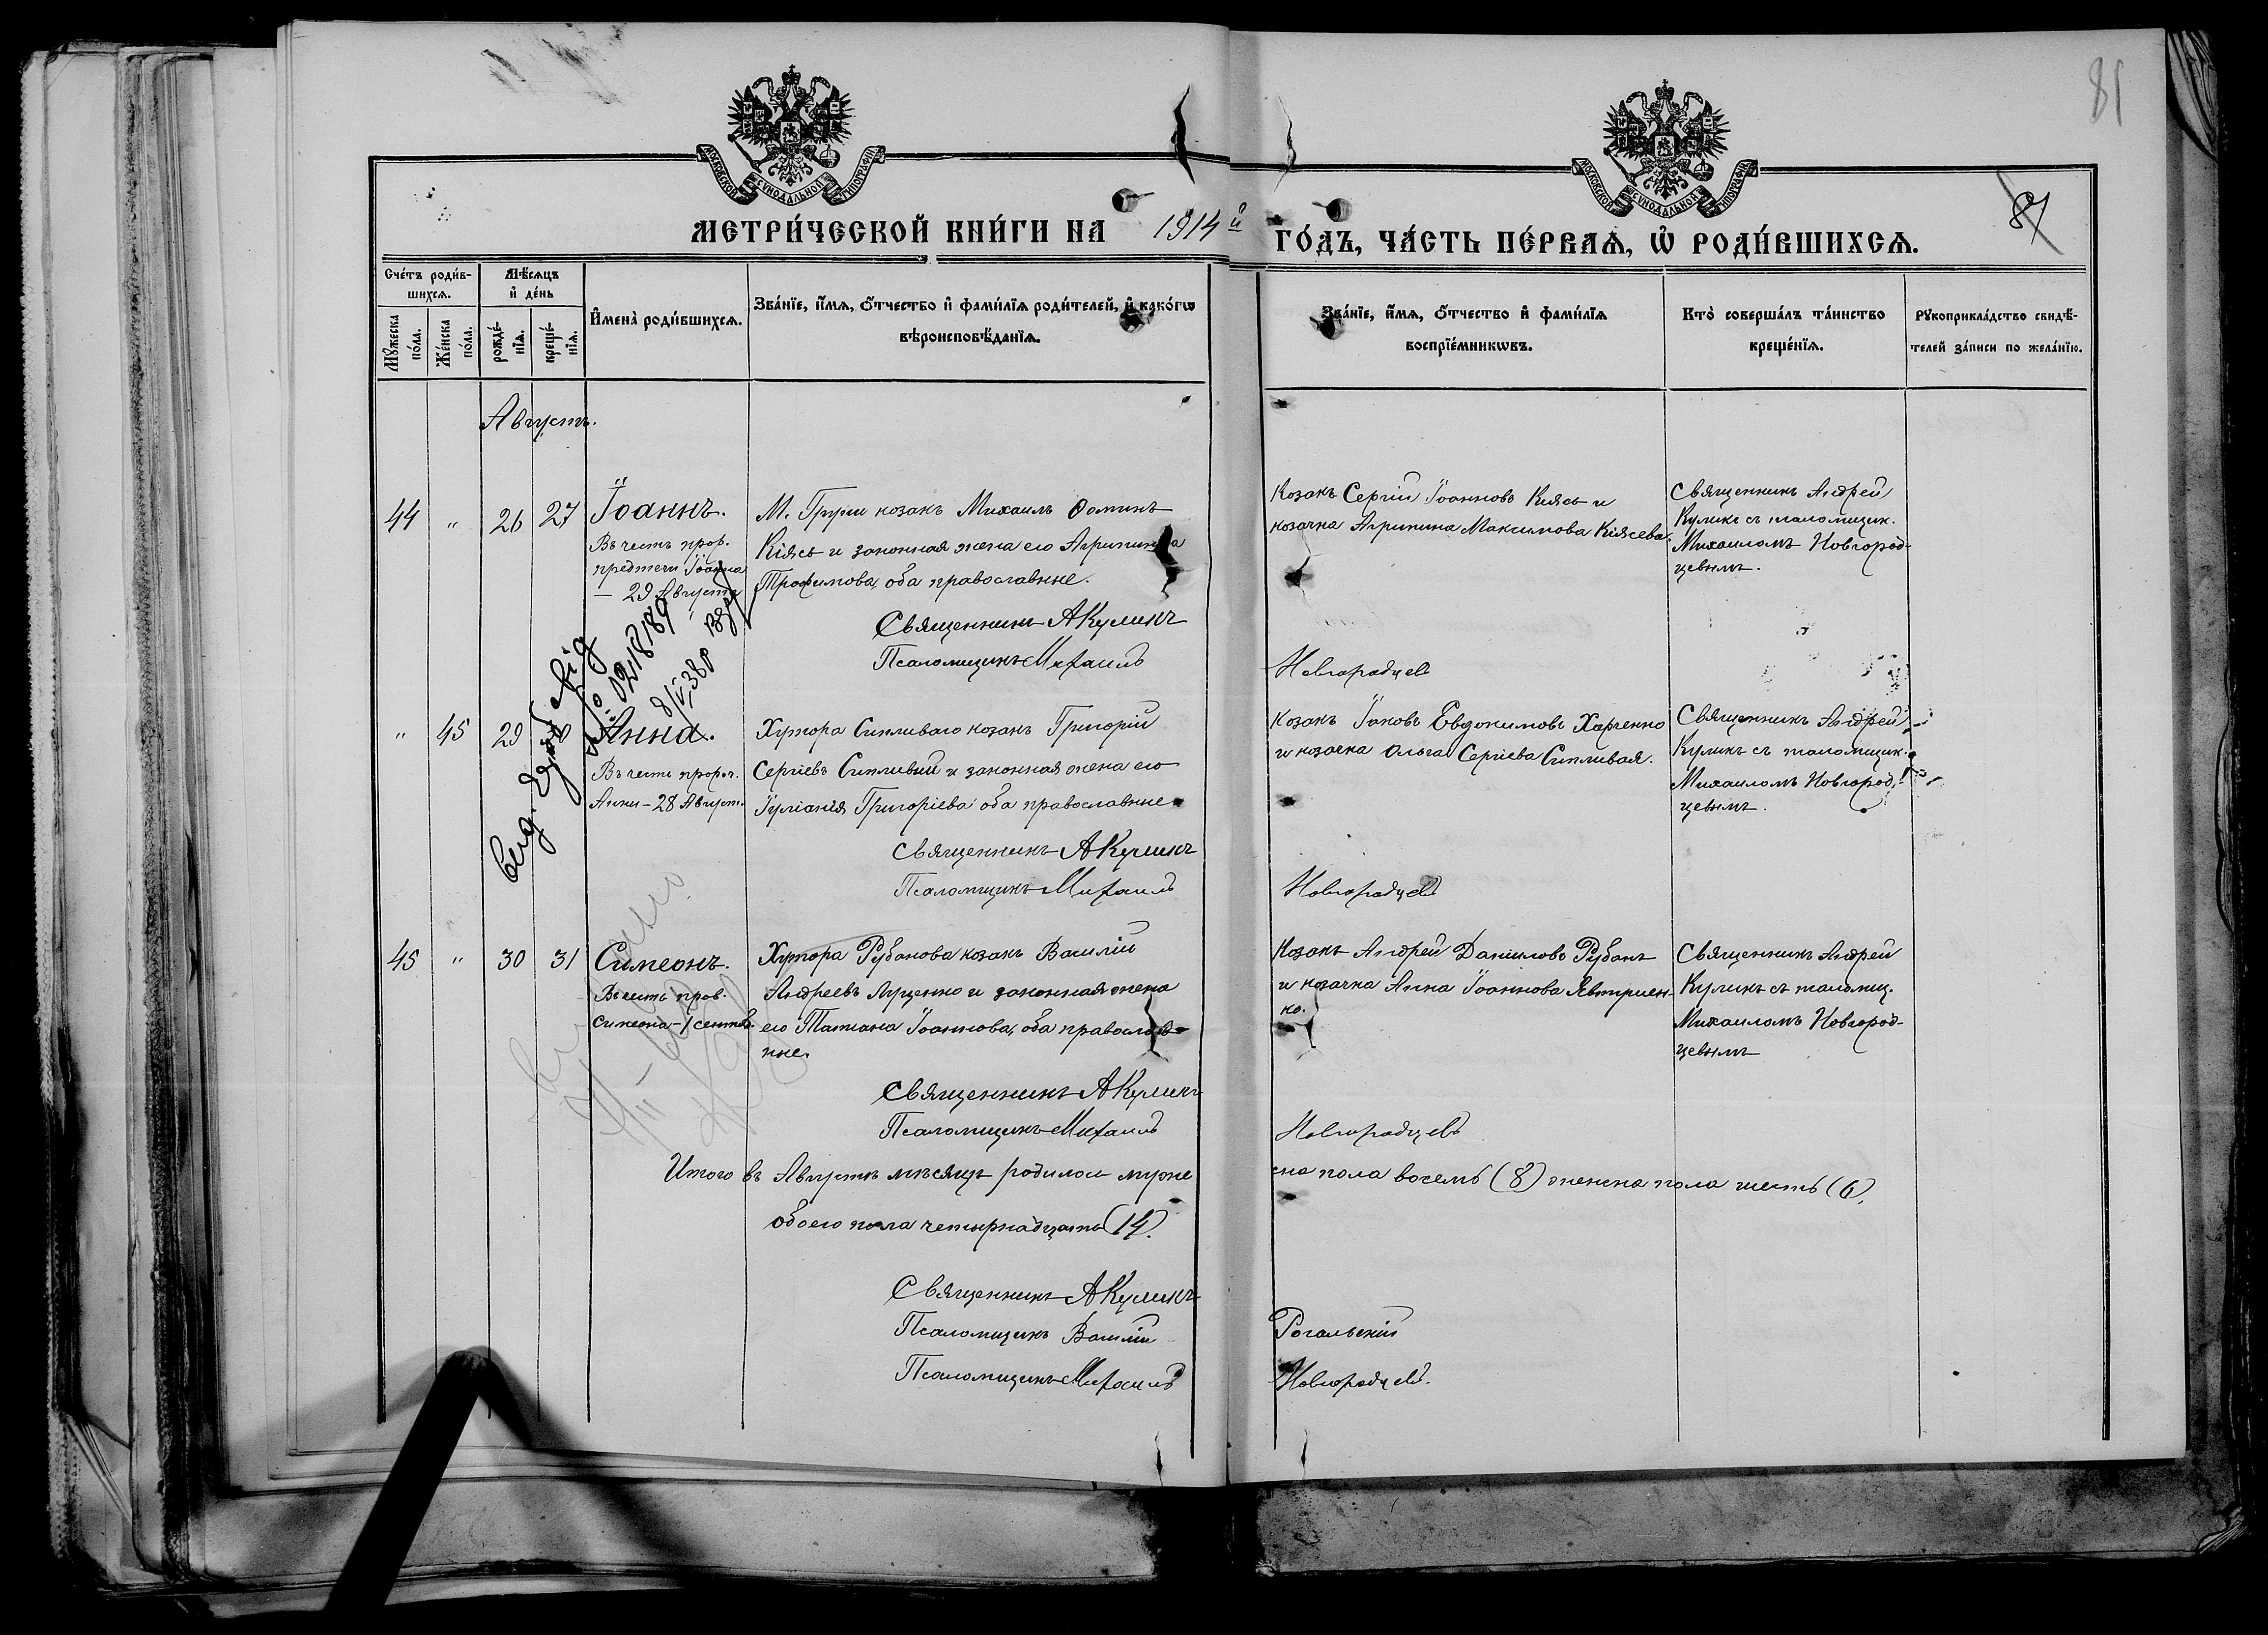 81
МОСКОВСКОЙ СѴНОДАЛЬНОЙ ТИПОГРАФІИ
МОСКОВСКОЙ СѴНОДАЛЬНОЙ ТИПОГРАФІИ
81
МЕТРИ́ЧЕСКОЙ КНИ́ГИ НА 1914й ГО́ДЪ, ЧА́СТЬ ПЕ́РВАѦ, Ѡ҆ РОДИ́ВШИХСѦ.
Сче́тъ роди́в-
шихсѧ.
Мѣ́сѧцъ
и҆ де́нь
Мꙋ́жеска
по́ла.
Же́нска
по́ла.
рожде́-
нїѧ.
креще́-
нїѧ.
И҆мена̀ роди́вшихсѧ.
Зва́нїе, и҆́мѧ, ѻ҆́тчество и҆ фами́лїѧ роди́телей, и҆ како́гѡ
вѣроисповѣ́данїѧ.
Зва́нїе, и҆́мѧ, ѻ҆́тчество и҆ фами́лїѧ
воспрїе́мникѡвъ.
Кто̀ соверша́лъ та́инство
креще́нїѧ.
Рꙋкоприкла́дство свидѣ́-
телей за́писи по жела́нїю.
Августъ.
44 " 26 27 Іоаннъ.
Въ честь прор.
предтечи Іоанна
— 29 Августа
М. Груни козакъ Михаилъ Ѳоминъ
Кіясь и законная жена его Агрипина
Трофимова, оба православные.
Священникъ А Куликъ
Псаломщикъ Михаилъ Новгородцевъ
Козакъ Сергій Іоанновъ Киясь и
козачка Агрипина Максимова Киясева.
Священникъ Андрей
Куликъ съ псаломщик.
Михаиломъ Новгород-
цевымъ.
" 45 29 Анна.
Въ честь пророч.
Анны – 28 Август.
Хутора Сипливаго козакъ Григорій
Сергіевъ Сипливый и законная жена его
Іуліанія Григоріева оба православные
Священникъ А Куликъ
Псаломщикъ Михаилъ Новгородцевъ
Козакъ Іаковъ Евдокимовъ Харченко
и козачка Ольга Сергіева Сипливая.
Священникъ Андрей
Куликъ съ псаломщик.
Михаиломъ Новгород-
цевымъ.
45 " 30 31 Симеонъ.
Въ честь прав.
Симеона – 1 сентяб.
Хутора Рубанова козакъ Василій
Андреевъ Луценко и законная жена
его Татиана Іоаннова, оба православ-
ные.
Священникъ А Куликъ
Псаломщикъ Михаилъ Новгородцевъ
Козакъ Андрей Даніиловъ Рубанъ
и козачка Анна Іоаннова Явтушен-
ко.
Священникъ Андрей
Куликъ съ псаломщ.
Михаиломъ Новгород-
цевымъ
Итого въ Августѣ мѣсяцѣ родилось муже ска пола восемь (8) женска пола шесть (6),
обоего пола четырнадцать (14).
Священникъ А Куликъ
Псаломщикъ Василій Рогальскій
Псаломщикъ Михаилъ Новгородцевъ.